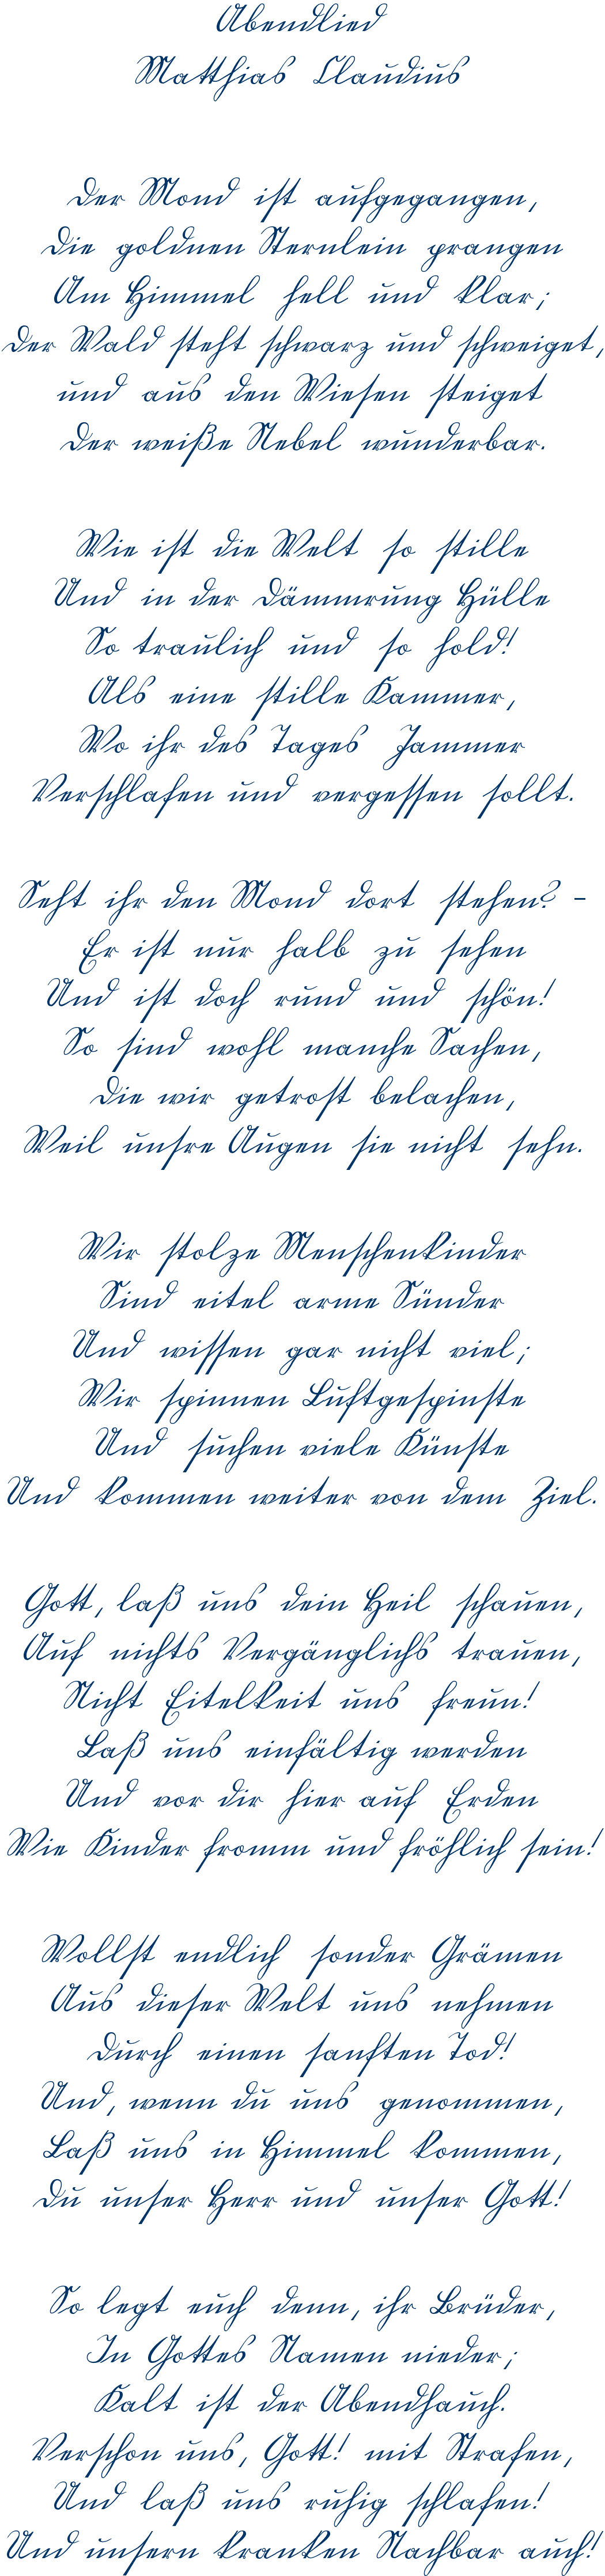 Abendlied
Matthias Claudius
Der Mond ist aufgegangen,
Die goldnen Sternlein prangen
Am Himmel hell und klar;
Der Wald steht schwarz und schweiget,
und aus den Wiesen steiget
Der weiße Nebel wunderbar.
Wie ist die Welt so stille
Und in der Dämmrung Hülle
So traulich und so hold!
Als eine stille Kammer,
Wo ihr des Tages Jammer
Verschlafen und vergessen sollt.
Seht ihr den Mond dort stehen? -
Er ist nur halb zu sehen
Und ist doch rund und schön!
So sind wohl manche Sachen,
Die wir getrost belachen,
Weil unsre Augen sie nicht sehn.
Wir stolze Menschenkinder
Sind eitel arme Sünder
Und wissen gar nicht viel;
Wir spinnen Luftgespinste
Und suchen viele Künste
Und kommen weiter von dem Ziel.
Gott, laß uns dein Heil schauen,
Auf nichts Vergänglichs trauen,
Nicht Eitelkeit uns freun!
Laß uns einfältig werden
Und vor dir hier auf Erden
Wie Kinder fromm und fröhlich sein!
Wollst endlich sonder Grämen
Aus dieser Welt uns nehmen
Durch einen sanften Tod!
Und, wenn du uns genommen,
Laß uns in Himmel kommen,
Du unser Herr und unser Gott!
So legt euch denn, ihr Brüder,
In Gottes Namen nieder;
Kalt ist der Abendhauch.
Verschon uns, Gott! mit Strafen,
Und laß uns ruhig schlafen!
Und unsern kranken Nachbar auch!